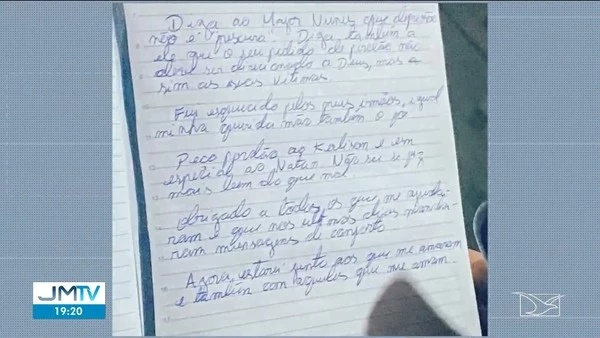 Diga ao Major Nunes que depressão
não é "frescura". Diga também a
ele que o seu pedido de perdão não
deve ser direcionado a Deus, mas a
sim as suas vítimas.
Fui esquecido pelos meus irmãos, igual
minha querida mãe também o foi
Peço perdão ao Kalison e em
especial ao Natan. Não sei se fiz
mais bem do que mal.
Obrigado a todos os que me ajuda-
ram e que nos últimos dias manda-
ram mensagens de conforto
Agora, estarei junto aos que me amaram
e também com aqueles que me amam.
JMTV
19:20